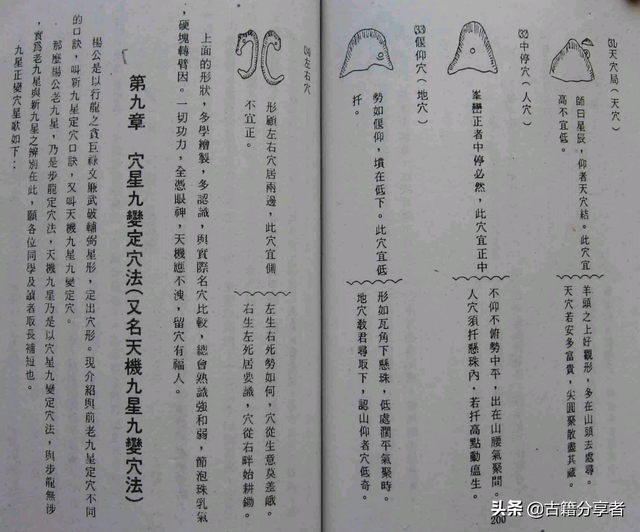 (31)天穴局(天穴)
師曰星辰，仰者天穴結。此穴宜
高不宜低。
羊頭之上好觀形，多在山頭去處尋。
天穴若安多富貴，尖圓聚散盡其藏。
(32)中停穴(人穴)
峯巒正者中停必然，此穴宜正中
不仰不俯勢中平，出在山腰氣聚間。
人穴須扦懸珠內，若扦高點動瘟生。
(33)偃仰穴(地穴)
勢如偃仰，墳在低下。此穴宜低
扦。
形如瓦角下懸珠，低處濶平氣聚時。
地穴敎君尋取下，認山仰者穴低奇。
200
(34)左右穴
形顧左右穴居兩邊，此穴宜側
不宜正。
左生右死勢如何，穴從生意莫差戲。
右生左死居要識，穴從右畔始耕鋤。
上面的形狀，多學繪製，多認識，與實際名穴比較，總會熟識強和弱，節泡珠乳氣
，硬塊轉臂因。一切功力，全憑眼神，天機應不洩，留穴有福人。
第九章　穴星九變定穴法(又名天機九星九變穴法)
楊公是以行龍之貪巨祿文廉武破輔弼星形，定出穴形。現介紹與前老九星定穴不同
的口訣，叫新九星定穴口訣，又叫天機九星九變定穴。
那麼楊公老九星，乃是步龍定穴法，天機九星乃是以穴星九變定穴法，與步龍無涉
，實爲老九星與新九星之辨別在此，願各位同學及讀者取長補短也。
九星正變穴星歌如下：
头条 @古籍分享者